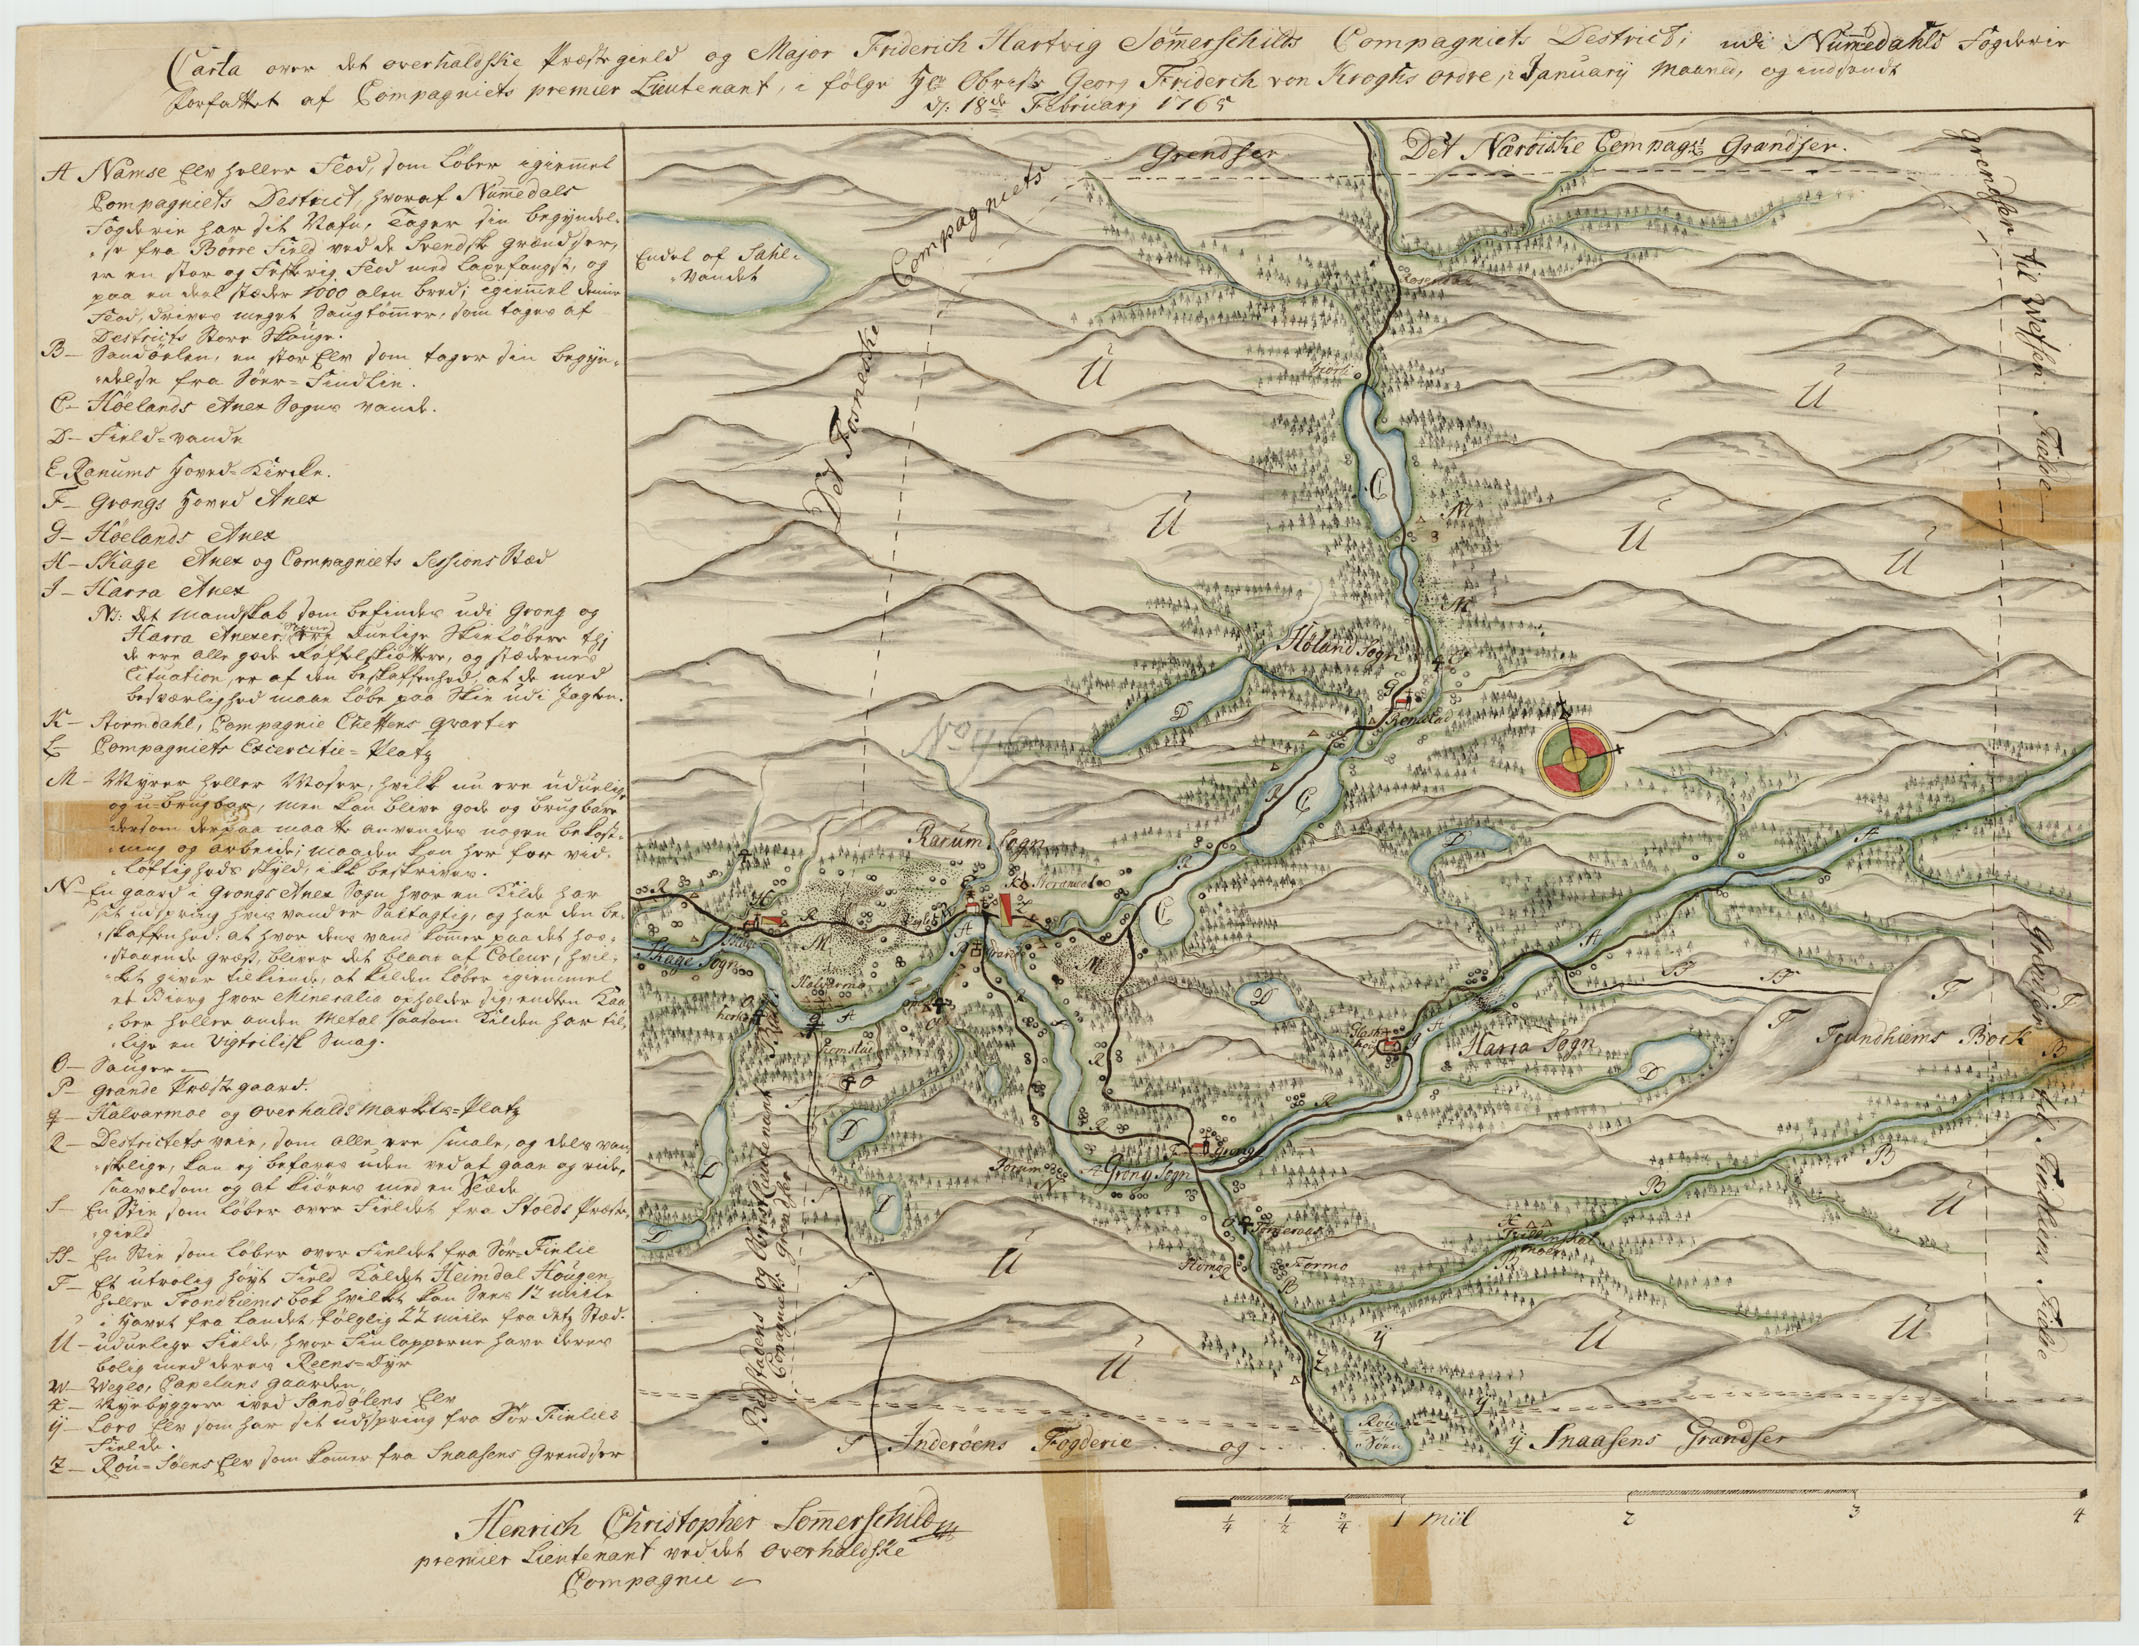 Carta over det overhaldske Præstegield og Major Friderich Hartvig Som̄erschilds Compagniets District; udi Num̄edahls Fogderie
forfattet af Compagniets premier Lieutenant, i følge Hr Obriste Georg Friderich von Kroghs ordre, i January Maaned, og indsendt
d: 18de February 1765
A Namse Elv heller Flod, som løber igiem̄el
Compagniets District, hvoraf Num̄edals
Fogderie har sit Nafn, Tager sin begyndel-
se fra Børre Field ved de Svendsk Grændser,
er en stor og Fiskerig Flod med Laxefangst, og
paa en deel stæder 1000 alen bred; igiem̄el denne
Flod, drives meget Saugtøm̄er, som tages af
Districts Store Skouge.
B- Sandølen, en stor Elv som tager sin begyn-
delse fra Søer-Findlie.
C- Høelands Anex Sogns vande.
D- Field-vande
E- Ranums Hoved-Kircke.
F- Grongs Hoved Anex
G- Høelands Anex
H- Skage Anex og Compagniets Sessions Stæd
I- Harra Anex
NB: det Mandskab som befindes udi Grong og
Harra Anexer, ere duelige Skieløbere thj
de ere alle gode Røffelskiøttere, og stædernes
Situation, er af den beskaffenhed, at de med
besværlighed maae løbe paa Skie udi Jagten.
K- Stormdahl, Compagnie Cheffens Qvarter
L- Compagniets Excercitie-Platz
M- Myrer heller Moser, hvilke nu ere uduelige
og u-brugbar, men kan blive gode og brugbare
dersom derpaa maatte anvendes nogen bekost-
ning og arbeide; maaden kan her for vid-
løftigheds skyld, ikke beskrives.
N- En gaard i Grongs Anex Sogn hvor en Kilde har
sit udspring hvis vand er Saltagtig, og har den be-
skaffenhed, at hvor dens vand kom̄er paa det hos-
staaende Græs, bliver det blaae af Coleur, hvil-
ket giver tilkiende, at kilden løber igiem̄mel
et Bierg hvor Mineralia opholder sig, endten Kaa-
ber heller anden Metal saasom Kilden har til-
lige en Vigtrilisk Smag.
O- Sauger
P- Grande Præstegaard.
q- Halvarmoe og Overhalds Markets-Platz
R- Destrictets veie, som alle ere smale, og dels van-
skelige, kan ej befares uden ved at gaae og ride,
saavelsom og at kiøres med en Slæde
S- En Stie som løber over Fieldet fra Stods Præste-
gield
SS- En Stie som løber over Fieldet fra Sør-Finlie
T- Et utrolig høyt Field Kaldet Heimdal Hougen
heller Trondhiems bok hvilket kan Sees 12 miile
i Havet fra Landet, følglig 22 miile fra dets Stæd.
U- uduelige Fielde, hvor Finlapperne have deres
bolig med deres Reens-Dyr
W- Weglo, Capelans gaarden
X- Nyebyggere ved Sandølens Elv
ÿ- Loro Elv som har sit udspring fra Sør Finlies
Fielde.
Z- Røu-Søens Elv som kom̄er fra Snaasens Grendser
Grendser
Det Narøiske Compags Grandser.
Compagniets
Det Fosneske
Grendser til Wefsen Fielde
Endel af Sahls
vandet
U
U
U
U
U
C
M
M
Høland Sogn
O
G
Remstad
D
No 46
R
C
R
C
D
A
Ranum Sogn
K
R
H
R
M
A
R
M
Skage
Skage Sogn
A
D
SS
SS
A
T
T
T
Harra Sogn
Trundhiems Bock
D
B
Grændser til Findliens Fielde
O
S
R
R
R
D
D
D
D
F
Grong
Grong Sogn
N
B
B
B
U
U
U
U
U
Formo
B
ÿ
Z
ÿ
ÿ
S
S
S
Bedstadens og Obrist Lieutenant
Compagniets Grendser
Inderøens Fogderie og
Røu
Søen
Snaasens Grandser
1/4 1/2 3/4 1 Miil 2 3 4
Henrich Christopher Som̄erschild
premier Lieutenant ved det Overhaldske
Compagnie